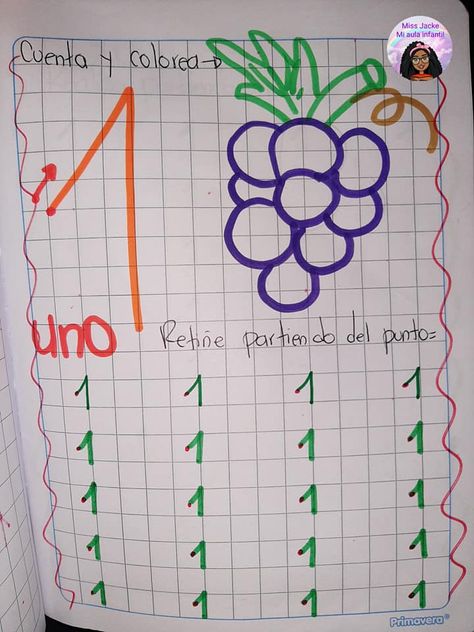 Miss Jacke
Mi aula infantil
Cuenta y colorea
1
uno
Retiñe partiendo del punto=
1 1 1 1
1 1 1 1
1 1 1 1
1 1 1 1
1 1 1 1
Primavera